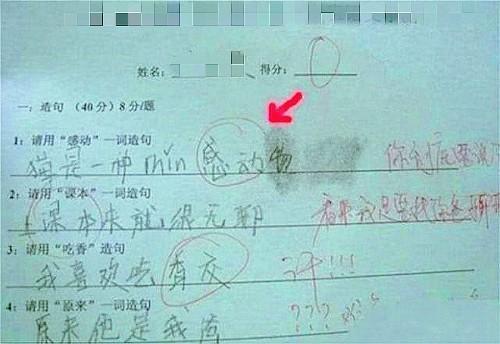 姓名： 得分：0
一：造句 （40分）8分/题
1：请用“感动”一词造句
猫是一种min感动物
你有病
2：请用“课本”一词造句
上课本来就很无聊
看来我是要找你爸聊聊
3：请用“吃香”造句
我喜欢吃香蕉
汗!!!
4：请用“原来”一词造句
原来他是我爸
???